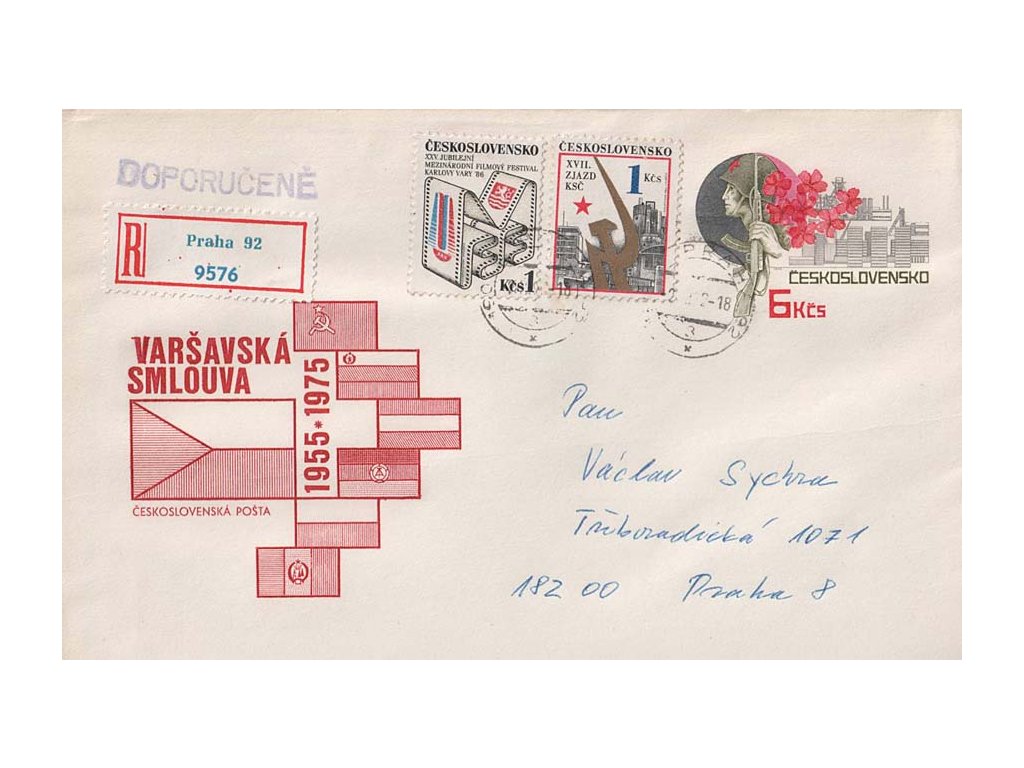 DOPORUČENĚ
R
Praha 92
9576
ČESKOSLOVENSKO
XXV. JUBILEJNÍ
MEZINÁRODNÍ FILMOVÝ FESTIVAL
KARLOVY VARY '86
Kčs 1
ČESKOSLOVENSKO
XVII.
ZJAZD
KSČ
1 Kčs
ČESKOSLOVENSKO
6 Kčs
VARŠAVSKÁ
SMLOUVA
1955*1975
ČESKOSLOVENSKÁ POŠTA
Pan
Václav Sychra
Třeboradická 1071
182 00 Praha 8